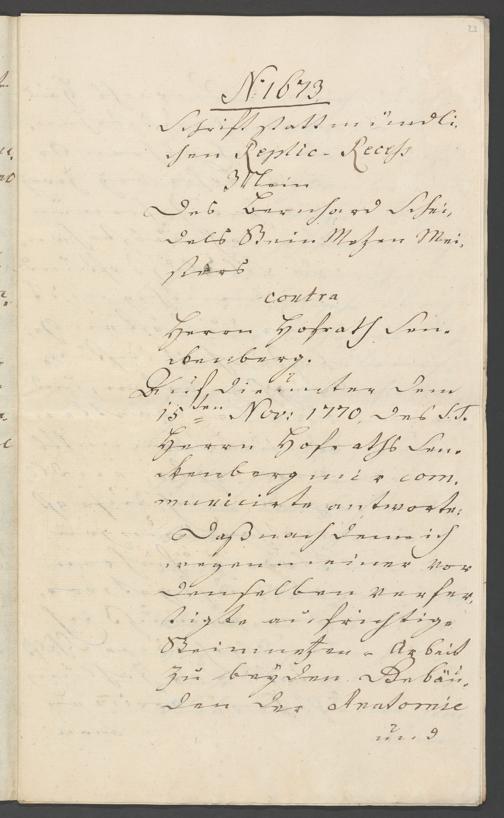 N: 1673
Schrift statt mündli-
chen Replic-Recess
Mein
Des Bernhard Schei,
dels Stein Metzen Mei-
sters
contra
Herrn Hofrath Sen-
ckenberg.
Auf die unter dem
15den Nov: 1770. des S.T.
Herrn Hofraths Sen-
ckenberg mir com-
municirte antworte:
Daß nach deme ich
wegen meiner vor
denselben verfer,
tigte aufrichtige
Steinmetzen-Arbeit
zu beyden Gebäu-
den der Anatomie
und